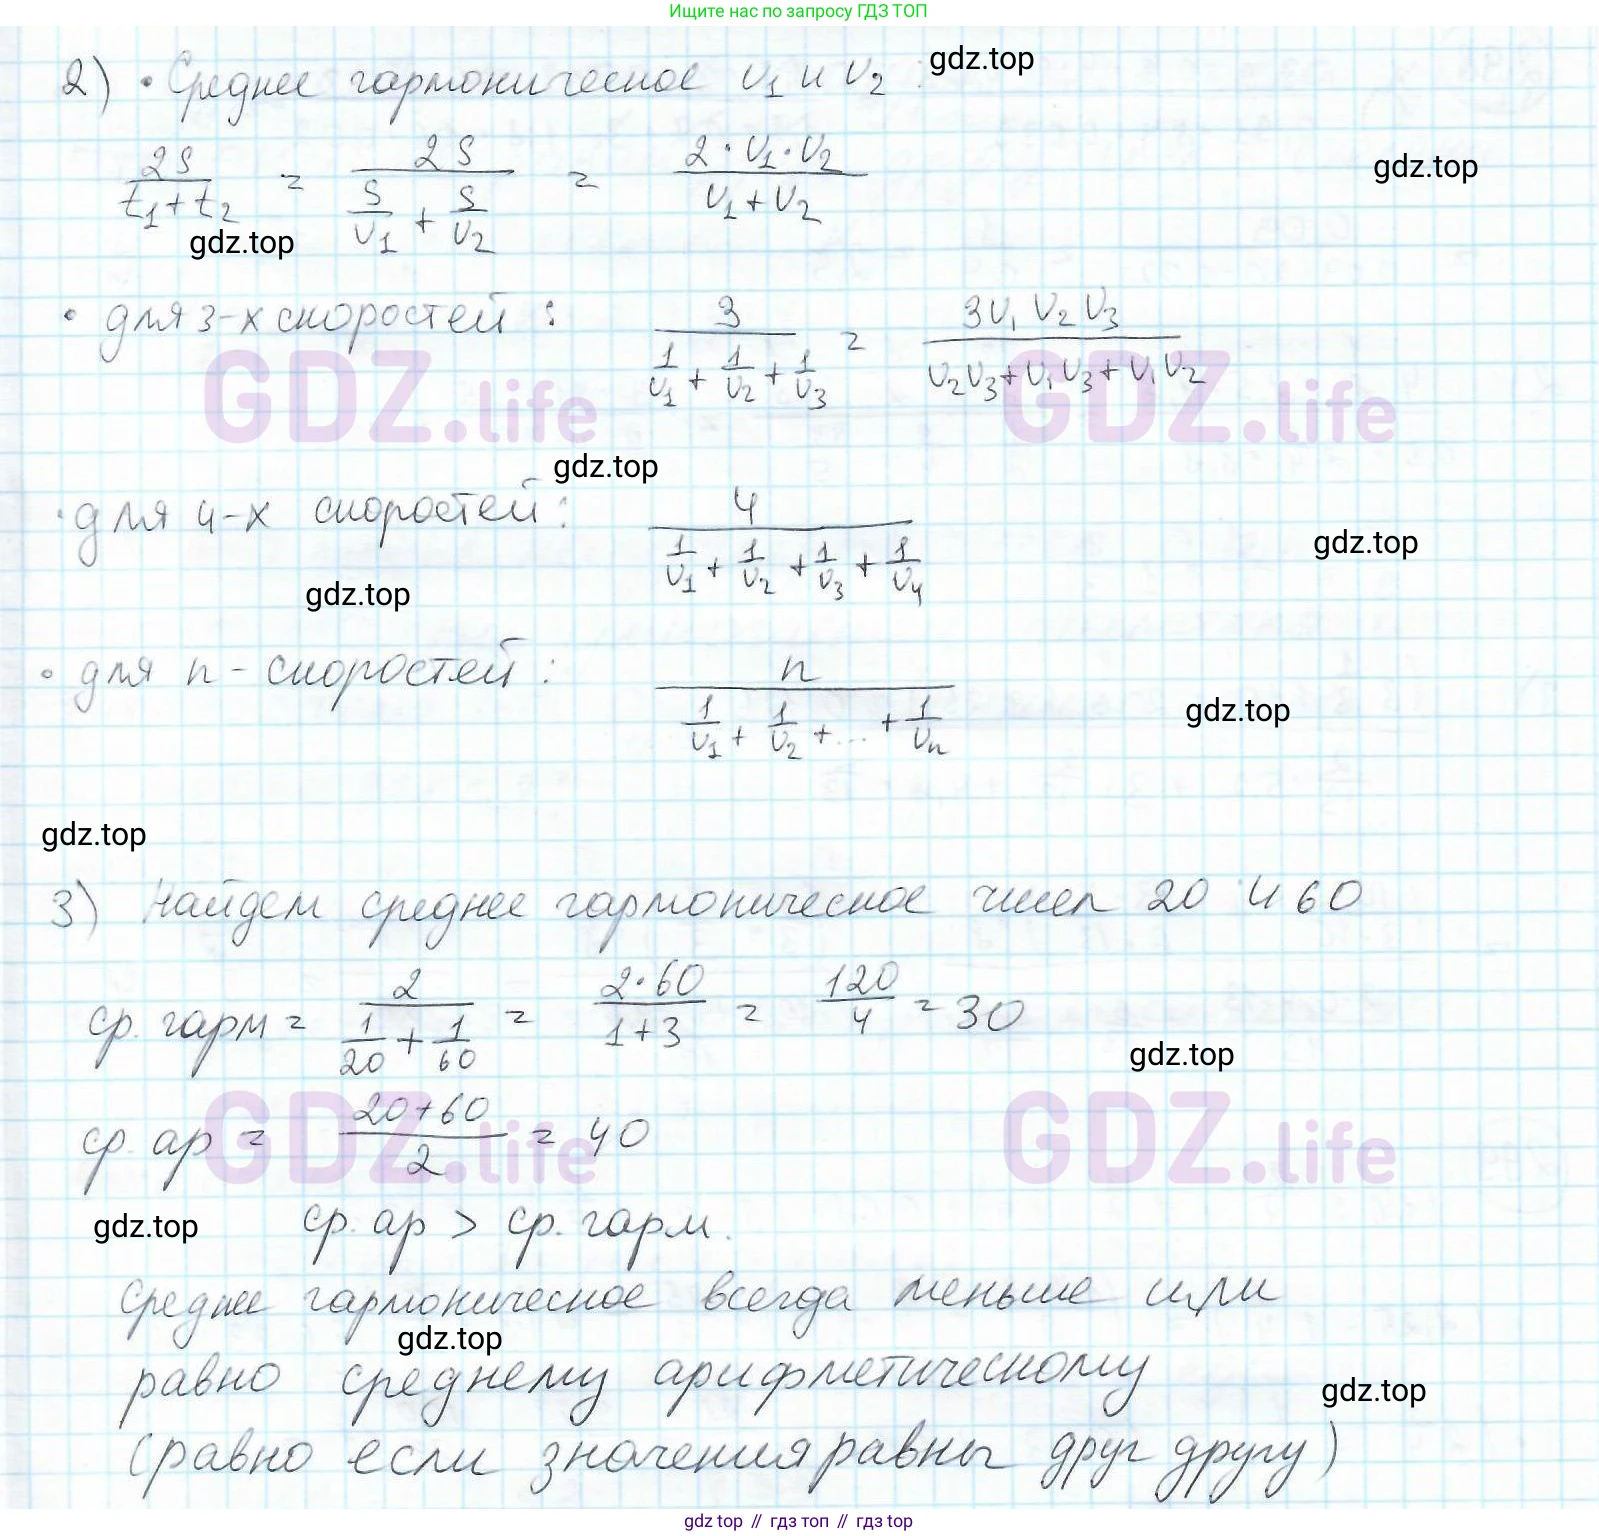 Ищите нас по запросу ГДЗ ТОП
2) • Среднее гармоническое υ₁ и υ₂ :
gdz.top
2S / (t₁ + t₂) = 2S / (S/υ₁ + S/υ₂) = 2·υ₁·υ₂ / (υ₁ + υ₂)
gdz.top
gdz.top
• для 3-х скоростей : 3 / (1/υ₁ + 1/υ₂ + 1/υ₃) = 3υ₁υ₂υ₃ / (υ₂υ₃ + υ₁υ₃ + υ₁υ₂)
GDZ.life GDZ.life
gdz.top
• для 4-х скоростей : 4 / (1/υ₁ + 1/υ₂ + 1/υ₃ + 1/υ₄)
gdz.top
gdz.top
• для n - скоростей : n / (1/υ₁ + 1/υ₂ + ... + 1/υₙ)
gdz.top
gdz.top
3) Найдем среднее гармоническое чисел 20 и 60
ср. гарм = 2 / (1/20 + 1/60) = 2·60 / (1+3) = 120/4 = 30
gdz.top
GDZ.life GDZ.life
ср. ар = (20+60) / 2 = 40
gdz.top
ср. ар > ср. гарм.
Среднее гармоническое всегда меньше или
gdz.top
равно среднему арифметическому
gdz.top
(равно если значения равны друг другу)
gdz top // гдз топ // гдз top